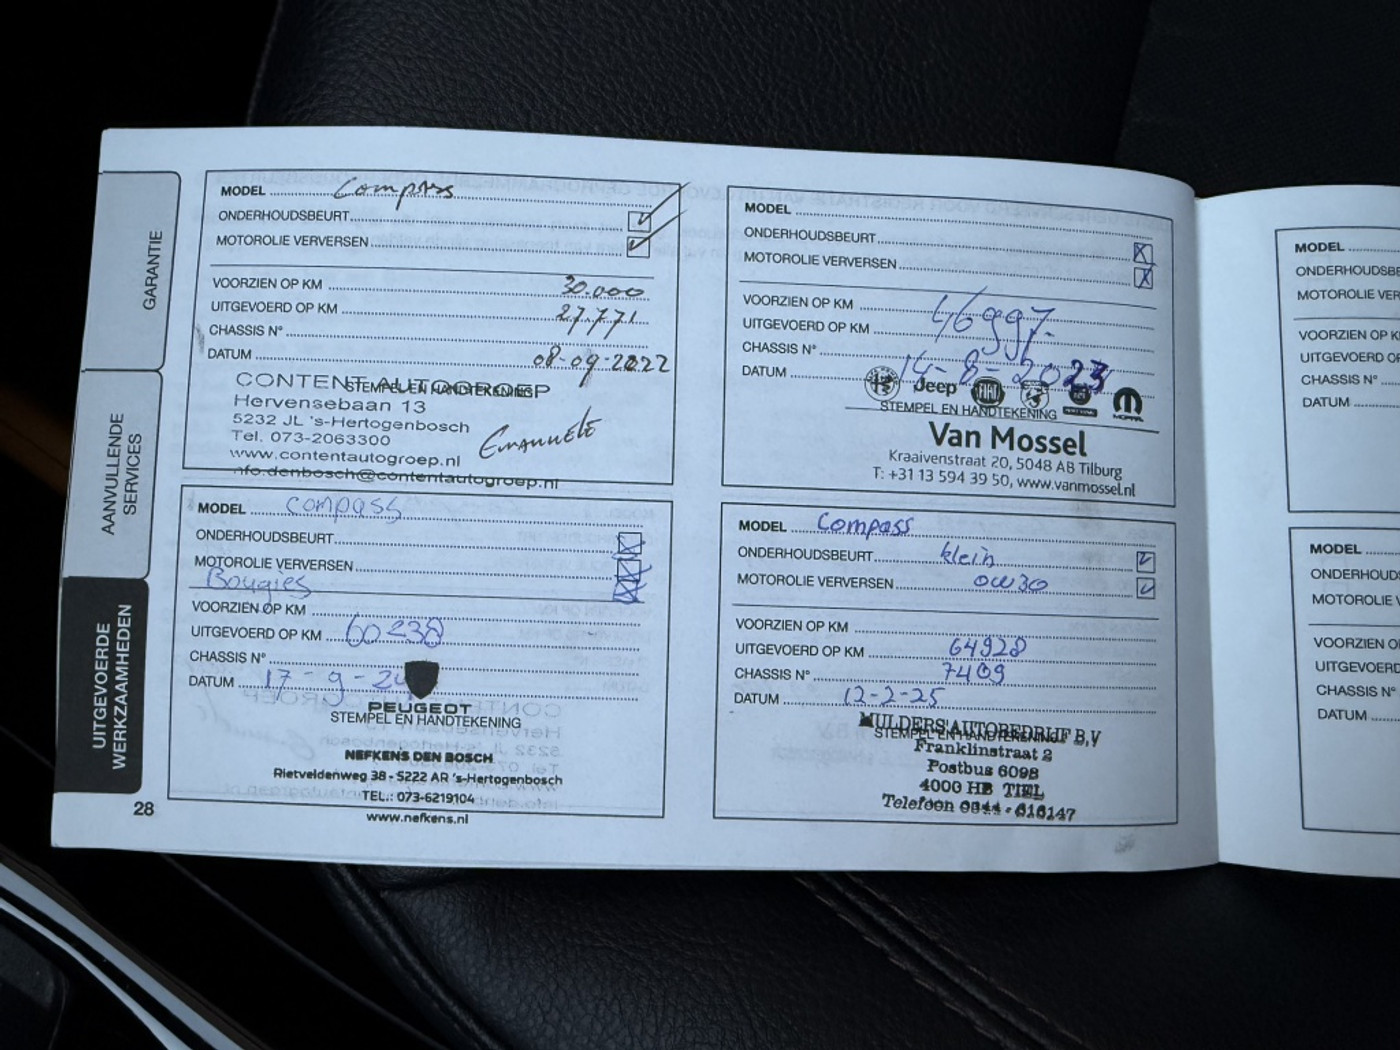 GARANTIE
AANVULLENDE
SERVICES
UITGEVOERDE
WERKZAAMHEDEN
28
MODEL Compass
ONDERHOUDSBEURT
MOTOROLIE VERVERSEN
VOORZIEN OP KM 30.000
UITGEVOERD OP KM 27.771
CHASSIS N°
DATUM 08-09-2022
STEMPEL EN HANDTEKENING
CONTENT AUTOGROEP
Hervensebaan 13
5232 JL 's-Hertogenbosch
Tel. 073-2063300
www.contentautogroep.nl
info.denbosch@contentautogroep.nl
EMANUELE
MODEL compass
ONDERHOUDSBEURT
MOTOROLIE VERVERSEN
Bougies
VOORZIEN OP KM
UITGEVOERD OP KM 60238
CHASSIS N°
DATUM 17-9-24
PEUGEOT
STEMPEL EN HANDTEKENING
NEFKENS DEN BOSCH
Rietveldenweg 38 - 5222 AR 's-Hertogenbosch
TEL.: 073-6219104
www.nefkens.nl
MODEL
ONDERHOUDSBEURT
MOTOROLIE VERVERSEN
VOORZIEN OP KM
UITGEVOERD OP KM 46997
CHASSIS N°
DATUM 14-8-2023
Jeep FIAT MOPAR
STEMPEL EN HANDTEKENING
Van Mossel
Kraaivenstraat 20, 5048 AB Tilburg
T: +31 13 594 39 50, www.vanmossel.nl
MODEL Compass
ONDERHOUDSBEURT klein
MOTOROLIE VERVERSEN 0W30
VOORZIEN OP KM
UITGEVOERD OP KM 64928
CHASSIS N° 7409
DATUM 12-2-25
STEMPEL EN HANDTEKENING
MULDERS AUTOBEDRIJF B.V
Franklinstraat 2
Postbus 6098
4000 HB TIEL
Telefoon 0344 - 616147
MODEL
ONDERHOUDSBE
MOTOROLIE VER
VOORZIEN OP K
UITGEVOERD OP
CHASSIS N°
DATUM
MODEL
ONDERHOUDS
MOTOROLIE V
VOORZIEN O
UITGEVOERD
CHASSIS N°
DATUM